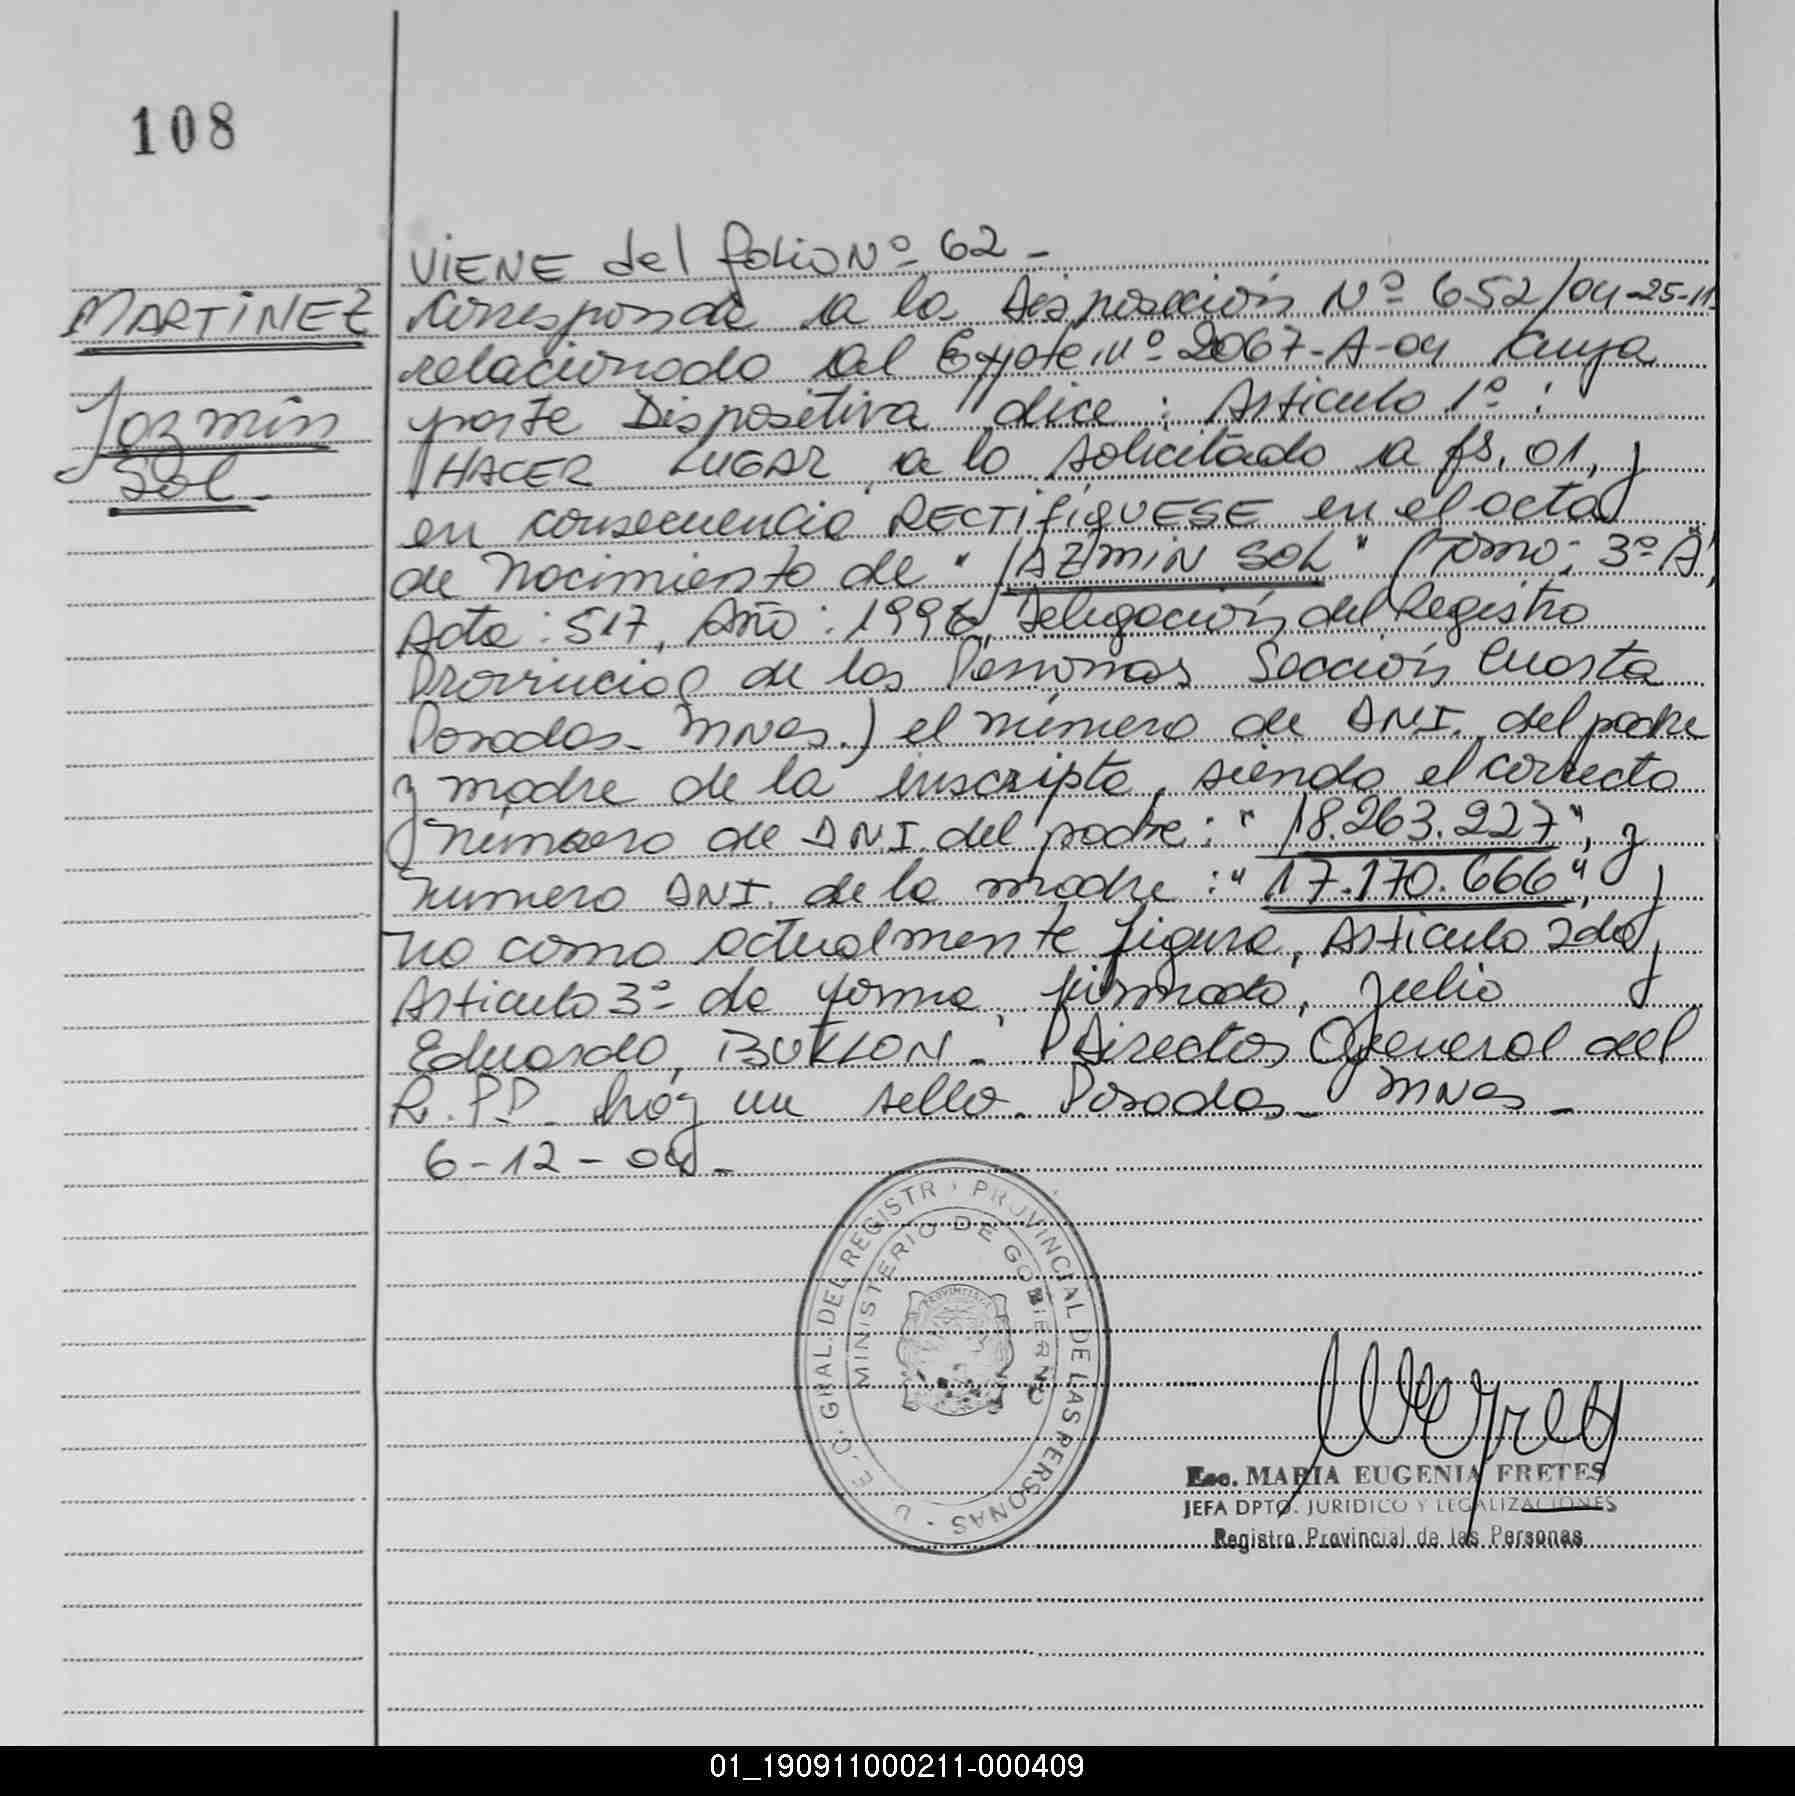 108
MARTINEZ
Jazmin
Sol -
VIENE del folio Nº 62 -
Corresponde a la Disposición Nº 652/04-25-11-
relacionado al Expte. Nº 2067-A-04 Cuya
parte Dispositiva dice: Articulo 1º:
HACER LUGAR a lo solicitado a fs. 01, y
en consecuencia RECTIFIQUESE en el acta
de nacimiento de "JAZMIN SOL" (Tomo: 3º A,
Acta: 517, Año: 1996, Delegación del Registro
Provincial de las Personas Sección Cuarta
Posadas - Mnes.) el número de DNI. del padre
y madre de la inscripta, siendo el correcto
número de DNI. del padre: "18.263.227", y
numero DNI. de la madre: "17.170.666", y
no como actualmente figura, Articulo 2do, y
Articulo 3º de forma, firmado, Julio
Eduardo, Director General del
R.P.P. hay un sello. Posadas - Mnes -
6-12-04 -
U. E. C. GRAL. DEL REGISTR PROVINCIAL DE LAS PERSONAS
MINISTERIO DE GOBIERNO
Esc. MARIA EUGENIA FRETES
JEFA DPTO. JURIDICO Y LEGALIZACIONES
Registro Provincial de las Personas
01_190911000211-000409